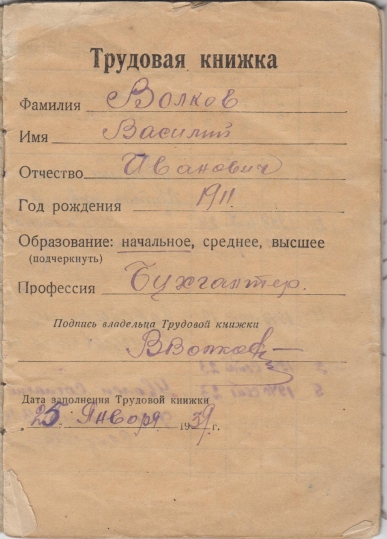 Трудовая книжка
Фамилия Волков
Имя Василий
Отчество Иванович
Год рождения 1911.
Образование: начальное, среднее, высшее
(подчеркнуть)
Профессия Бухгалтер.
Подпись владельца Трудовой книжки
ВВолков
Дата заполнения Трудовой книжки
„25„ Января 1939 г.